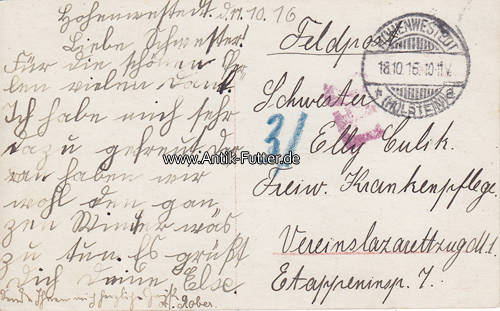 Hohenwestedt. d. 17.10.16
Liebe Schwester!
Für die schönen
len vielen Dank.
Ich habe mich sehr
dazu gefreut, da
ran haben wir
wohl den gan
zen Winter was
zu tun. Es grüßt
Dich deine Else.
Ihnen auch herzliche
Feldpost
HOHENWESTEDT
18.10.16. 10-11 V.
* (HOLSTEIN) a
Schwester
3/
Elly Culik.
www.Antik-Futter.de
Freiw. Krankenpflege
Vereinslazarettzug M. 1.
Etappeninsp. 7.